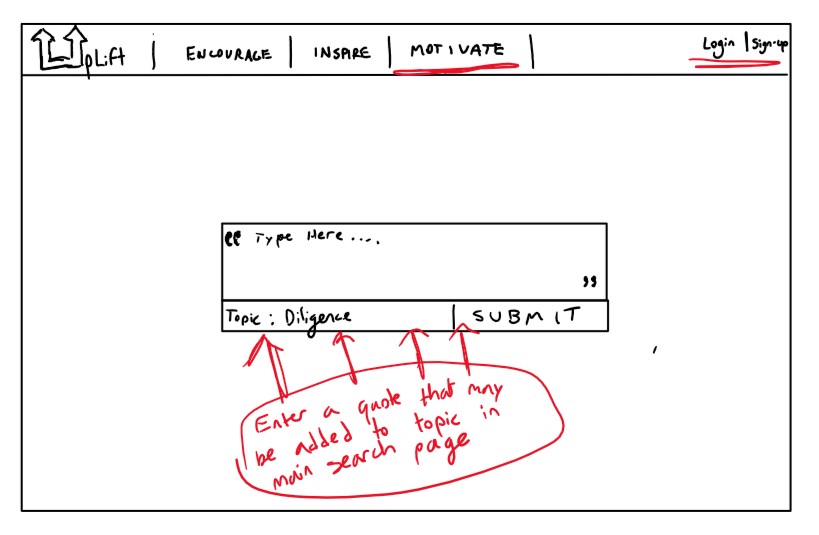 UpLift | ENCOURAGE | INSPIRE | MOTIVATE | Login | Sign-up
“ Type Here ....
”
Topic : Diligence | SUBMIT
Enter a quote that may
be added to topic in
main search page